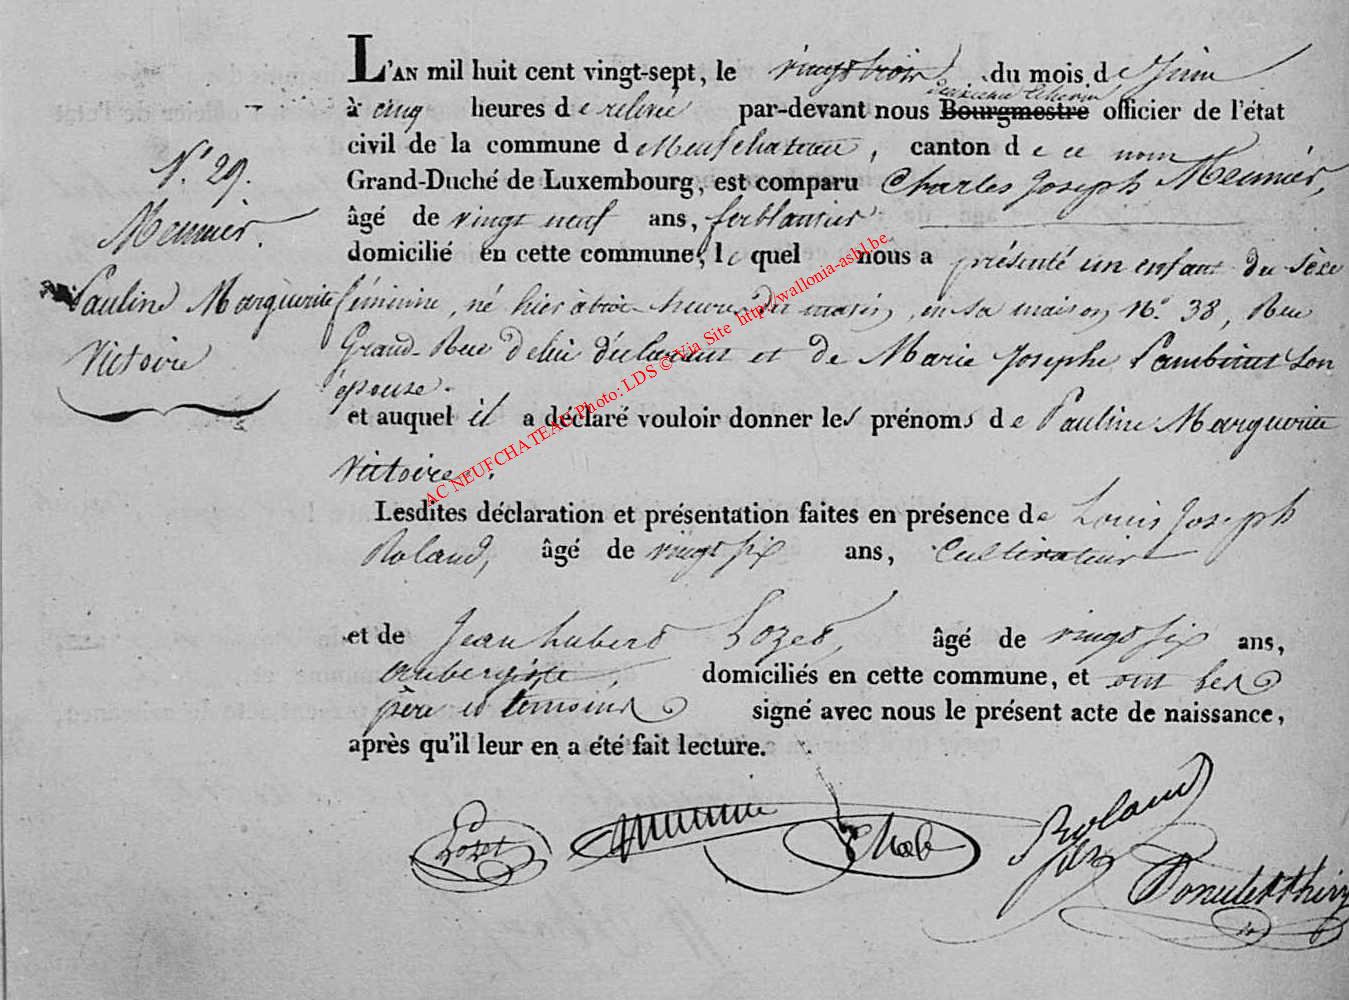 L'AN mil huit cent vingt-sept, le vingt trois du mois de Juin
à cinq heures de relevé par-devant nous Bourgmestre officier de l'état
civil de la commune de Neufchateau, canton de ce nom
Grand-Duché de Luxembourg, est comparu Charles Joseph Meunier,
âgé de vingt neuf ans, ferblantier
domicilié en cette commune, le quel nous a présenté un enfant du sèxe
féminine, né hier à trois heures du matin, en sa maison N.º 38, Rue
Grand-Rue de lui déclarant et de Marie Josephe Lambinet son
épouse.
et auquel il a déclaré vouloir donner les prénoms de Pauline Marguerite
Victoire.
Lesdites déclaration et présentation faites en présence de Louis Joseph
Roland, âgé de vingt six ans, Cultivateur
et de Jean hubert Lozet, âgé de vingt six ans,
aubergiste, domiciliés en cette commune, et ont les
père et témoins signé avec nous le présent acte de naissance,
après qu'il leur en a été fait lecture.
N.º 29.
Meunier.
Pauline Marguerite
Victoire
AC NEUFCHATEAU Photo: LDS © Via Site http://wallonia-asbl.be
Lozet Meunier Roland
fils